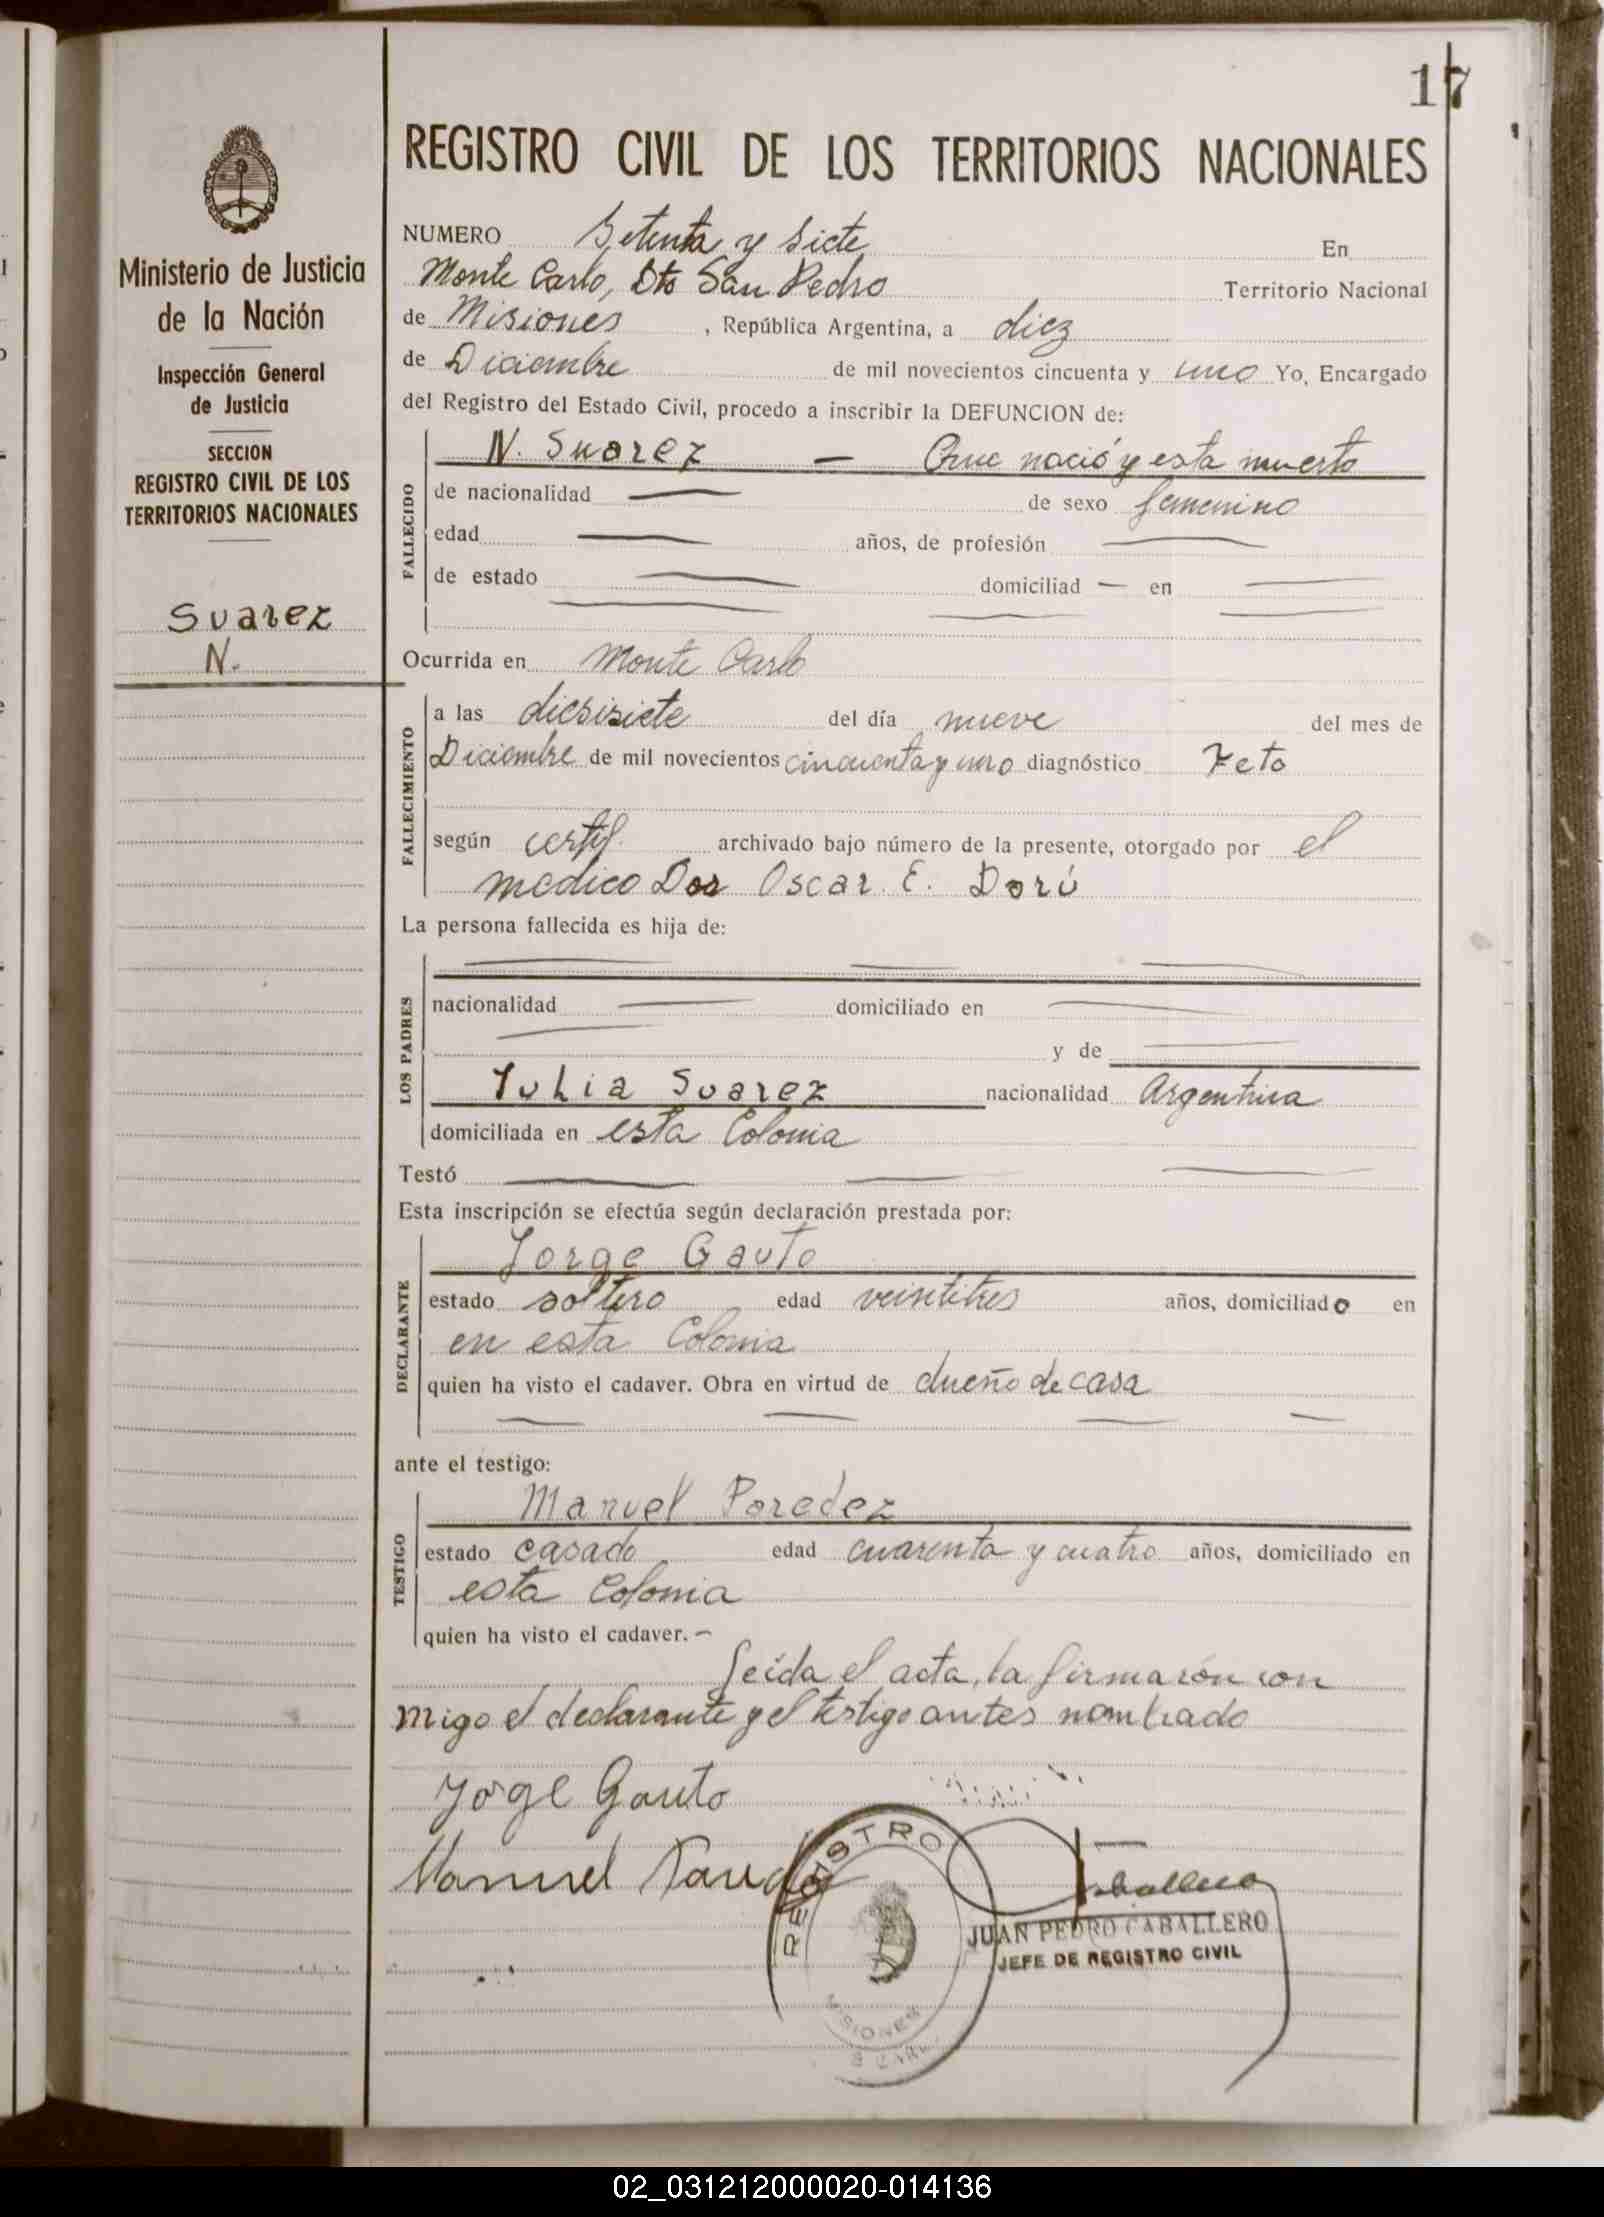 17
REGISTRO CIVIL DE LOS TERRITORIOS NACIONALES
Ministerio de Justicia
de la Nación
Inspección General
de Justicia
SECCION
REGISTRO CIVIL DE LOS
TERRITORIOS NACIONALES
Suarez
N.
NUMERO Setenta y Siete En
Monte Carlo, Dto San Pedro Territorio Nacional
de Misiones , República Argentina, a diez
de Diciembre de mil novecientos cincuenta y uno Yo, Encargado
del Registro del Estado Civil, procedo a inscribir la DEFUNCION de:
FALLECIDO
N. Suarez — Que nació y esta muerto
de nacionalidad — de sexo femenino
edad — años, de profesión —
de estado — domiciliad — en —
Ocurrida en Monte Carlo
FALLECIMIENTO
a las diesisiete del día nueve del mes de
Diciembre de mil novecientos cincuenta y uno diagnóstico Feto
según certif. archivado bajo número de la presente, otorgado por el
medico Dor Oscar. E. Dorú
La persona fallecida es hija de:
LOS PADRES
nacionalidad — domiciliado en —
— y de —
Julia Suarez nacionalidad Argentina
domiciliada en esta Colonia
Testó — — —
Esta inscripción se efectúa según declaración prestada por:
DECLARANTE
Jorge Gauto
estado soltero edad veintitres años, domiciliado en
en esta Colonia
quien ha visto el cadaver. Obra en virtud de dueño de casa
ante el testigo:
TESTIGO
Manuel Paredez
estado casado edad cuarenta y cuatro años, domiciliado en
esta Colonia
quien ha visto el cadaver. —
Leida el acta, la firmarón con
migo el declarante y el testigo antes nombrado
Jorge Gauto
Manuel
REGISTRO
MISIONES
JUAN PEDRO CABALLERO
JEFE DE REGISTRO CIVIL
02_031212000020-014136